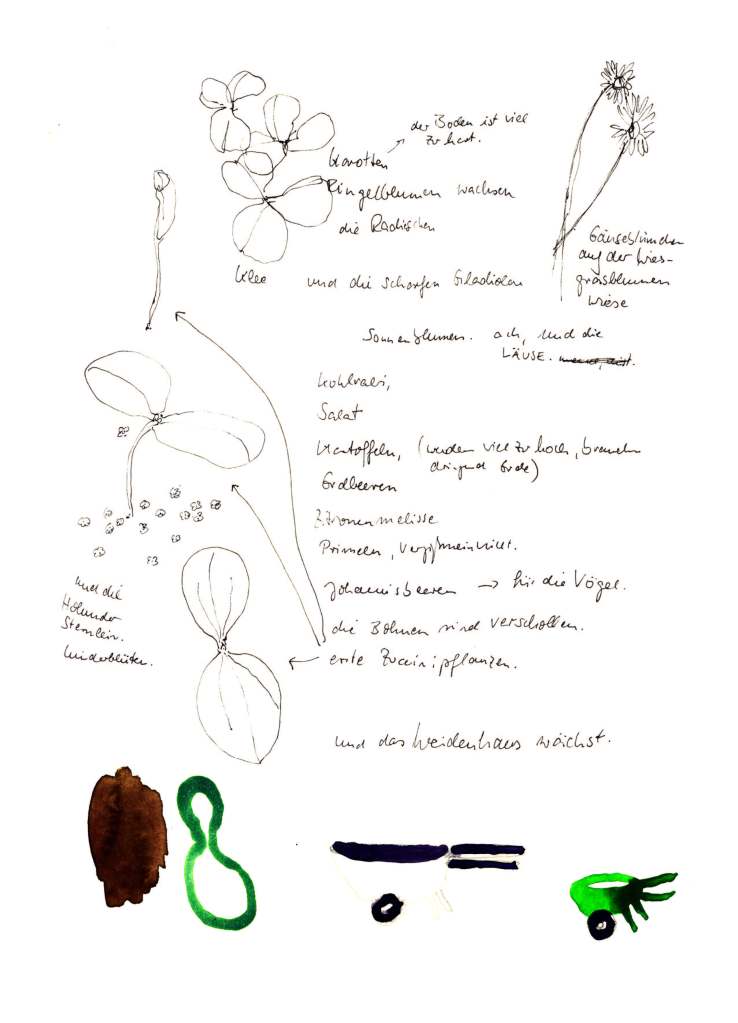 der Boden ist viel
zu fest.
Karotten
Ringelblumen wachsen
die Radischen
Klee
und die scharfen Gladiolen
Gänseblümchen
auf der Wies-
grasblumen
wiese
Sonnenblumen. ach, und die
LÄUSE.
Kohlrabi,
Salat
Kartoffeln, (werden viel zu hoch, brauchen
dringend Erde)
Erdbeeren
Zitronenmelisse
Primeln, Vergißmeinnicht.
Johannisbeeren → für die Vögel.
die Bohnen sind verschollen.
erste Zucinipflanzen.
und die
Holunder
Sternlein.
kinderblüten.
und das Weidenhaus wächst.